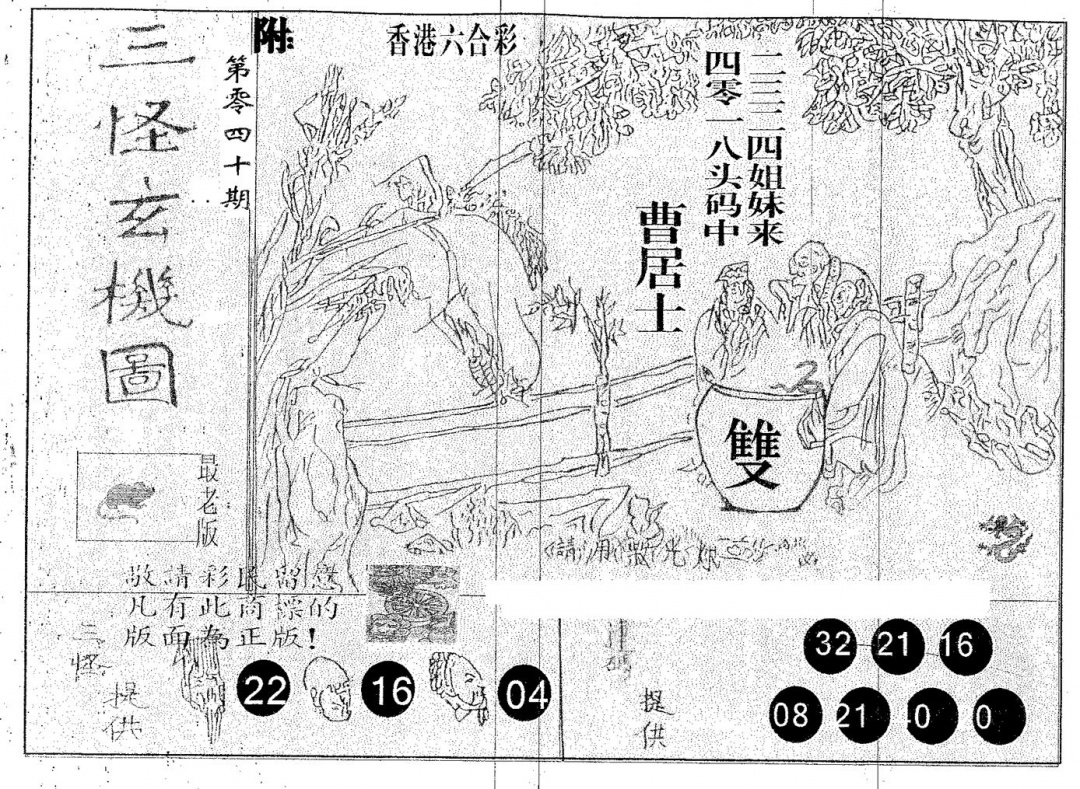 三怪玄機圖
第零四十期
附:
香港六合彩
二三三四姐妹来
四零一八头码中
曹居士
雙
最老版
敬請彩民留意
凡有此商標的
版面為正版!
三怪
提供
22 16 04
提供
32 21 16
08 21 0 0